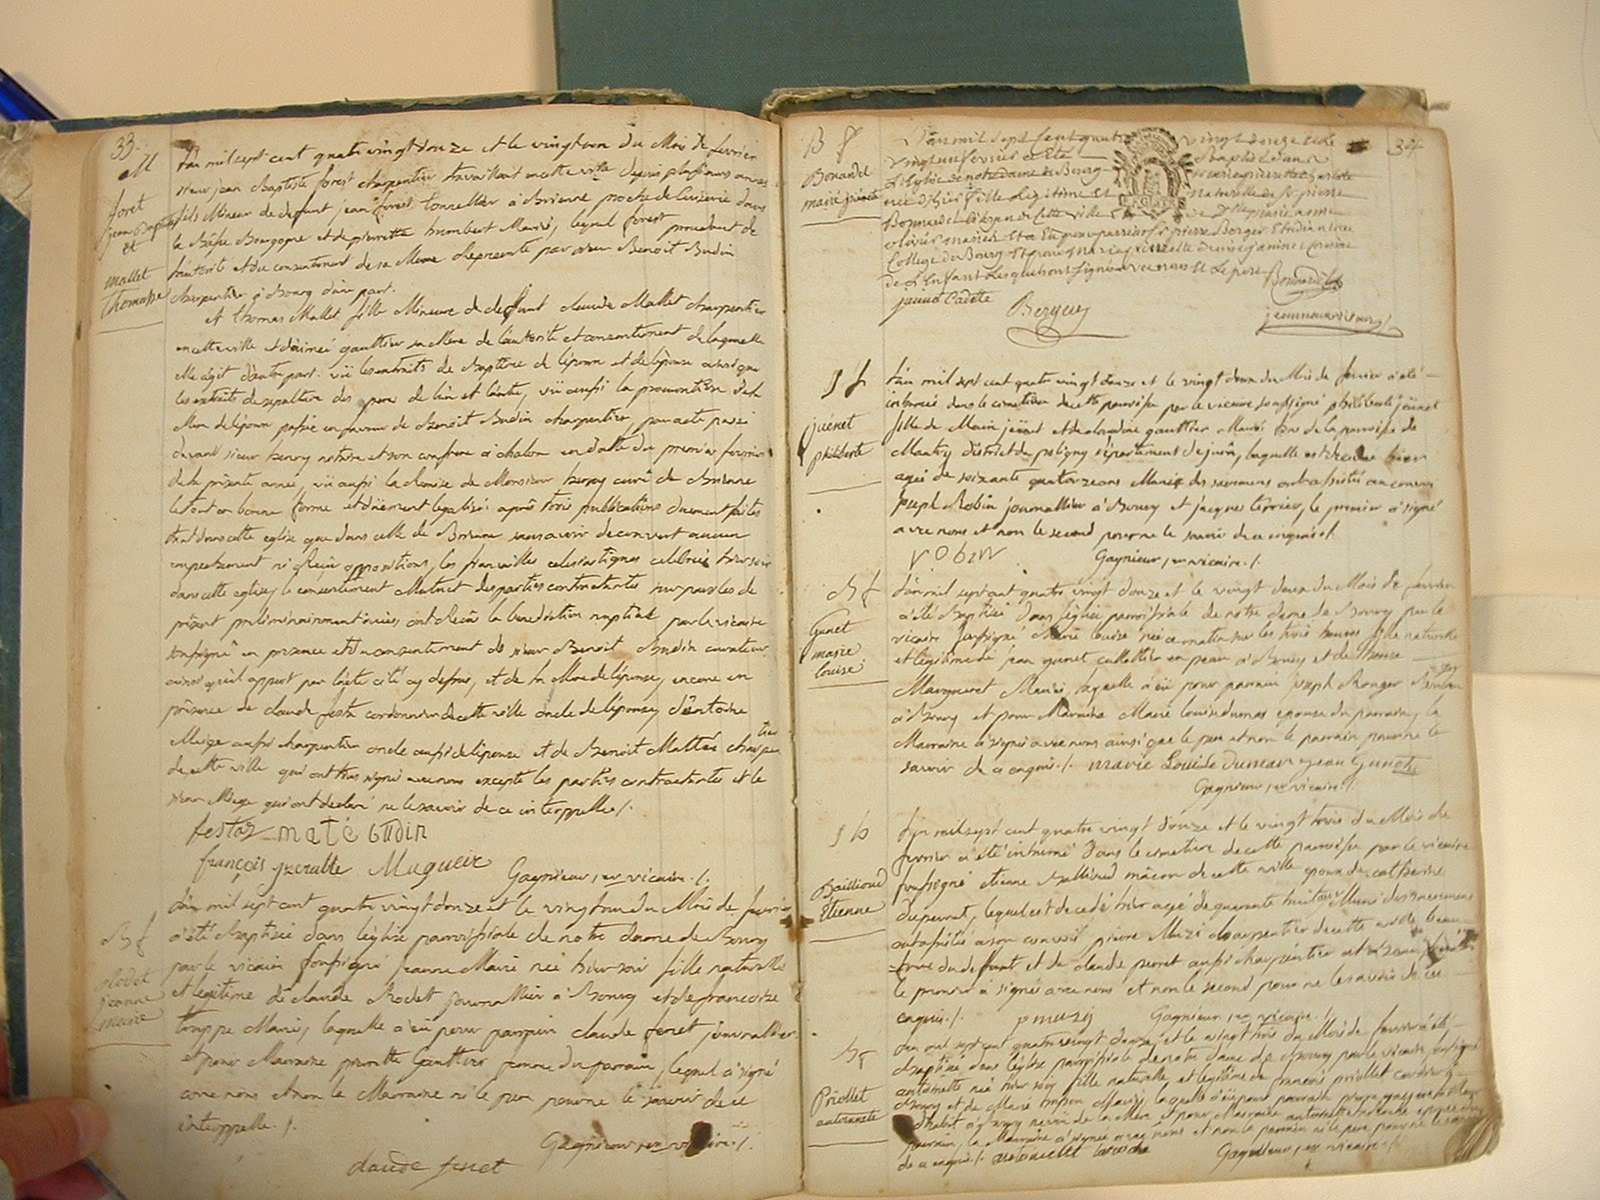 33.
M
foret
jean Baptiste
et
mallet
Thomasse
L'an mil sept cent quatre vingt douze et le vingt un du Mois de fevrier
sieur jean Baptiste forest charpentier travaillant en cette ville depuis plusieurs années
fils Mineur de defunt jean forest Tonnellier à Brienne proche de Cuiserie dans
la Bresse Bourgogne et de pierrette humbert Mariés, lequel forest procedant de
l'autorité et du consentement de sa Mere Representé par sieur Benoit Budin
charpentier à Bourg d'une part.
Et thomasse Mallet fille Mineure de deffunt claude Mallet charpentier
en cette ville et d'aimée gauthier sa Mere de l'autorité et consentement de laquelle
elle agit d'autre part. vü les extraits de Baptere de l'époux et de l'épouse ainsi que
les extraits de sepulture des peres de l'un et l'autre, vü aussi la procuration de la
Mere de l'époux passée en faveur de Benoit Budin charpentier, par acte passé
devant sieur henry notaire et son confrere à chalon en datte du premier fevrier
de la présente année, vü aussi la Remise de Monsieur curé de Brienne
le tout en bonne forme et düement legalisé: après trois publications düement faites
tant dans cette eglise que dans celle de Brienne sans avoir decouvert aucun
empechement ni Reçu oppositions, les fiancailles celesiastiques celebrées hier soir
dans cette eglise, le consentement Mutuel des parties contractantes par paroles de
présent preliminairement ont Reçu la benediction nuptiale par le vicaire
soussigné en presence et du consentement de sieur Benoit Budin curateur
ainsi qu'il appert par l'acte cité cy dessus, et de la Mere de l'épouse, encore en
présence de claude festa cordonnier de cette ville oncle de l'épouse, d'Antoine
Miege aussi charpentier oncle aussi de l'épouse et de Benoit Mattée charpentier
de cette ville qui ont tous signé avec nous excepté les parties contractantes et le
sieur Miege qui ont declaré ne le savoir de ce interppellés /.
festaz maté budin
françois Muguier Gagnieur, 1er vicaire ./.
B f
Rodet
jeanne
marie
L'an mil sept cent quatre vingt douze et le vingt un du Mois de fevrier
a été Baptisée dans l'église paroissiale de notre dame de Bourg
par le vicaire soussigné jeanne Marie née hier soir fille naturelle
et legitime de claude Rodet journallier à Bourg et de francoise
Mariés, laquelle a eü pour parrain claude feret journallier
et pour Marraine pierrette Gauthier femme du parrain, lequel a signé
avec nous et non la Marraine ni le pere pour ne le savoir de ce
interppellés ./.
Gagnieur, 1er vicaire ./.
claude feret
34
B f
Bonardel
marie
L'an mil sept cent quatre vingt douze et le
vingt un fevrier a été Baptisée dans
L'Eglise de notre dame de Bourg
née d'hier fille Legitime et naturelle de Sr pierre
de cette ville et de Dlle marie anne
mariés et a eu pour parrein Sr pierre Berger Etudiant au
College de Bourg et pour
de L'Enfant Lesquels ont signé avec nous et Le pere
Cadette Berger Bonardel
S f
juénet
philiberte
L'an mil sept cent quatre vingt douze et le vingt deux du Mois de fevrier a été
inhumée dans le cimetiere de cette paroisse par le vicaire soussigné philiberte jüenet
fille de Marin jüenet et de claudine gauthier Mariés de la paroisse de
Mantry district de poligny département du jura, laquelle est décedée hier
agée de soixante quatorze ans Munie des sacremens ont assisté au convoi
joseph Robin journallier à Bourg et jacques terrier, le premier a signé
avec nous et non le second pour ne le savoir de ce enquis /.
robin Gagnieur, 1er vicaire ./.
B f
Gunet
marie
louise
L'an mil sept cent quatre vingt douze et le vingt deux du Mois de fevrier
a été Baptisée dans l'église paroissiale de notre dame de Bourg par le
vicaire soussigné Marie louise née ce matin sur les trois heures fille naturelle
et légitime de jean gunet culottier en peau à Bourg et de
Marguerit Mariés, laquelle a eü pour parrain joseph
à Bourg et pour Marraine Marie louise dumas epouse du parrain, la
Marraine a signé avec nous ainsi que le pere et non le parrain pour ne le
savoir de ce enquis /. marie Louise Dumas jean Gunet
Gagnieur, 1er vicaire ./.
S h
Baillioud
Etienne
L'an mil sept cent quatre vingt douze et le vingt trois du Mois de
fevrier a été inhumé dans le cimetiere de cette paroisse par le vicaire
soussigné etienne Ballioud mâcon de cette ville epoux de catherine
duperrat, lequel est decedé hier agé de quarante huit ans Muni des sacremens
ont assistés a son convoi pierre Muzi charpentier de cette ville beau
frere du deffunt et de claude perret aussi charpentier
le premier a signé avec nous et non le second pour ne le savoir de ce
enquis ./. p muzy Gagnieur, 1er vicaire ./.
B f
Priollet
antoinette
L'an mil sept cent quatre vingt douze, et le vingt trois du Mois de fevrier a été
Baptisée dans l'église paroissiale de notre dame de Bourg par le vicaire soussigné
antoinette née hier soir fille naturelle et legitime de francois priollet
à Bourg et de Marie Mariés, laquelle a eü pour parrain
Bourg neveu de la Mere et pour Marraine antoinette
parrain, la Marraine a signée avec nous et non le parrain ni le pere pour ne le savoir
de ce enquis ./. antoinette laroche Gagnieur, 1er vicaire ./.